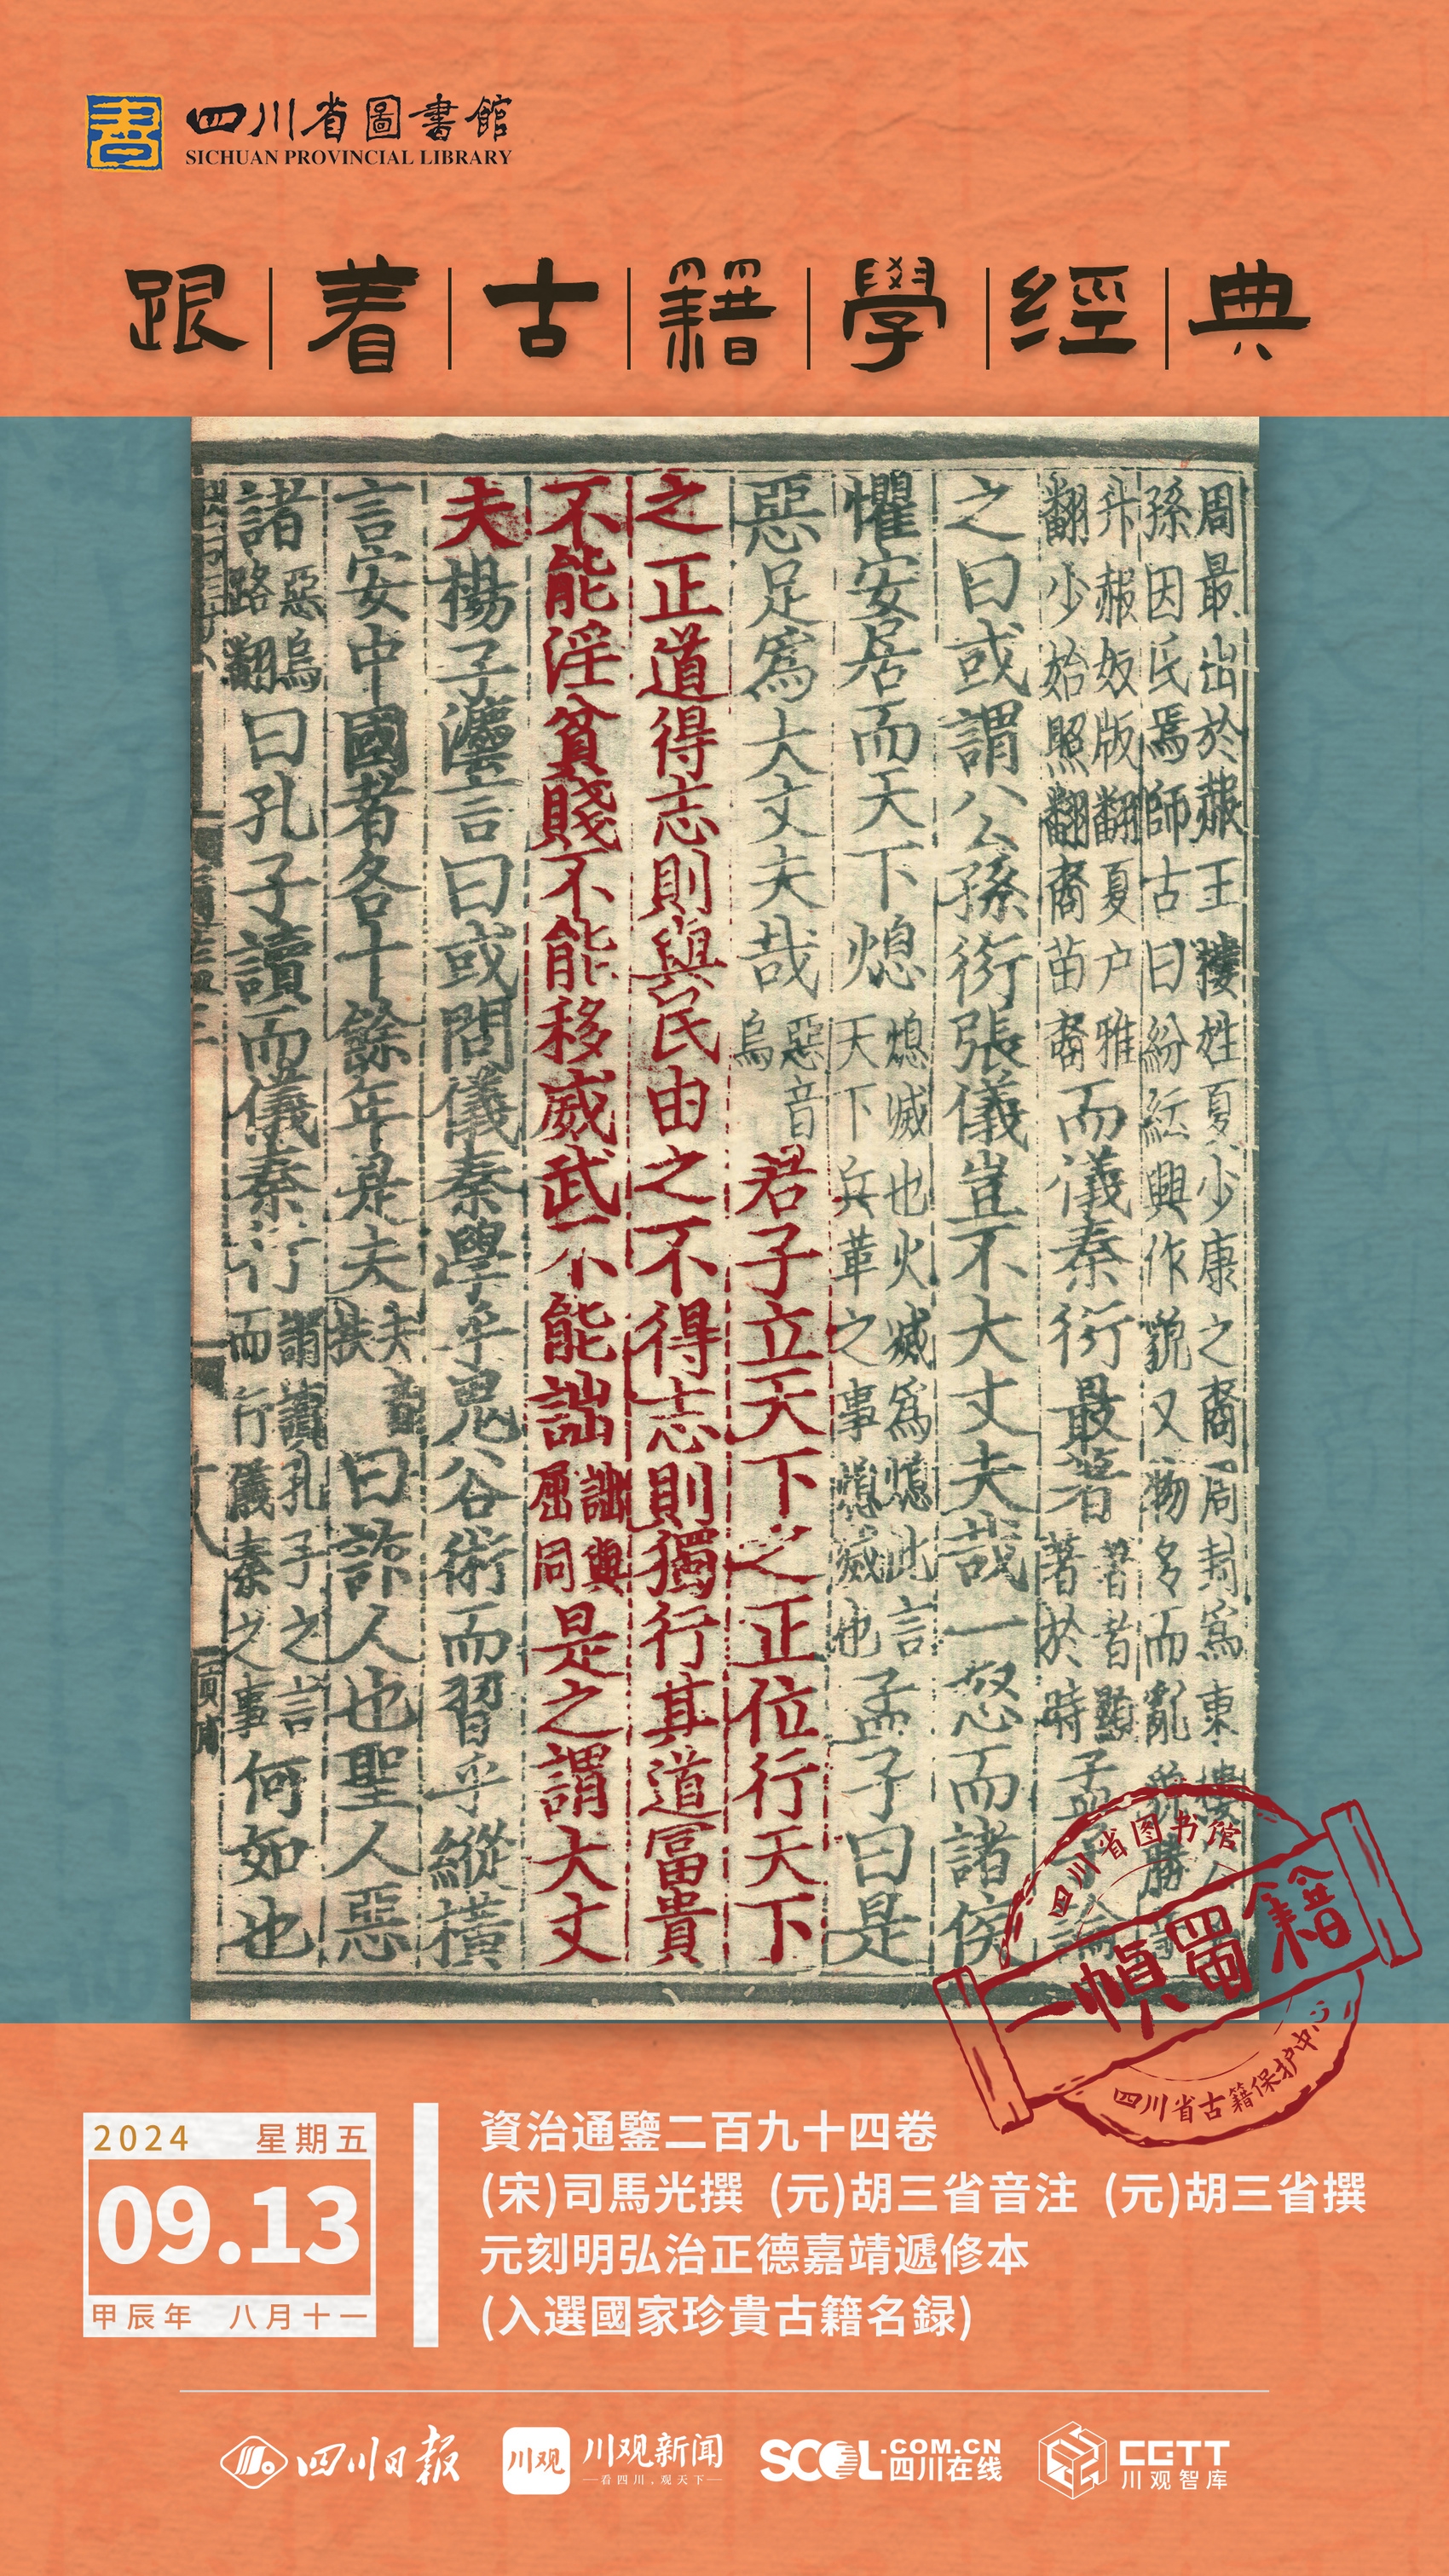 四川省圖書館
SICHUAN PROVINCIAL LIBRARY
跟着古籍學經典
周最出於赧王 姓夏少康之裔周封爲東樓
孫因氏焉師古曰紛紜興作貌又物多而亂
赧奴版翻夏户雅翻少始照翻裔苗裔而儀秦衍最著著者顯著於時孟子論
之曰或謂公孫衍張儀豈不大丈夫哉一怒而諸侯
懼安居而天下熄熄滅也火滅爲熄此言天下兵革之事熄滅也孟子曰是
惡足爲大丈夫哉惡音烏君子立天下之正位行天下
之正道得志則與民由之不得志則獨行其道富貴
不能淫貧賤不能移威武不能詘詘與屈同是之謂大丈
夫楊子灋言曰或問儀秦學乎鬼谷術而習乎縱橫
言安中國者各十餘年是夫夫音扶曰詐人也聖人惡
諸惡烏路翻曰孔子讀而儀秦行謂讀孔子之言而行儀秦之事何如也
四川省图书馆
一幀蜀籍
四川省古籍保护中心
2024 星期五
09.13
甲辰年 八月十一
資治通鑒二百九十四卷
(宋)司馬光撰 (元)胡三省音注 (元)胡三省撰
元刻明弘治正德嘉靖遞修本
(入選國家珍貴古籍名録)
四川日报
川观 川观新闻
看四川，观天下
SCOL.COM.CN
四川在线
CGTT
川观智库